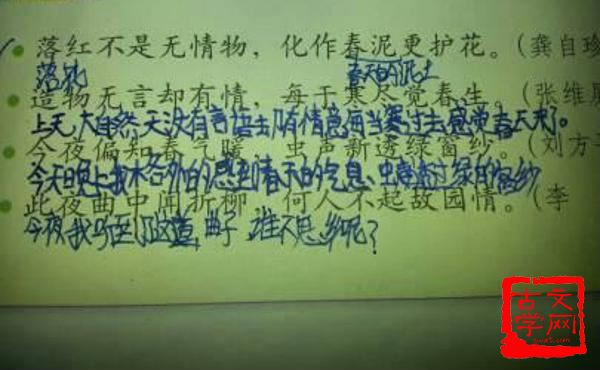 落红不是无情物，化作春泥更护花。（龚自珍
落花 春天的泥土
造物无言却有情，每于寒尽觉春生。（张维屏
上天,大自然,天没有言语却有情意每当寒过去感觉春天来了。
今夜偏知春气暖，虫声新透绿窗纱。（刘方平
今天晚上我格外的感到春天的气息、虫鸣透过绿的窗纱
此夜曲中闻折柳，何人不起故园情。（李
今夜我听到了这首曲子 谁不思乡呢？
古文
学网